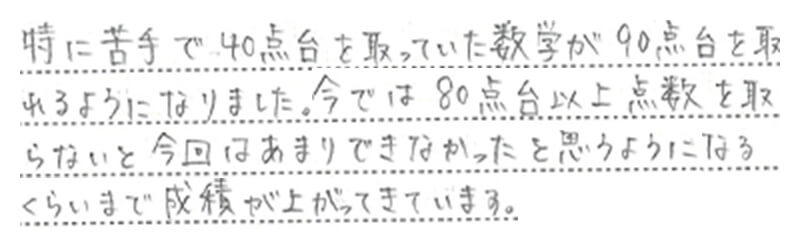 特に苦手で40点台を取っていた数学が90点台を取
れるようになりました。今では80点台以上点数を取
らないと今回はあまりできなかったと思うようになる
くらいまで成積が上がってきています。